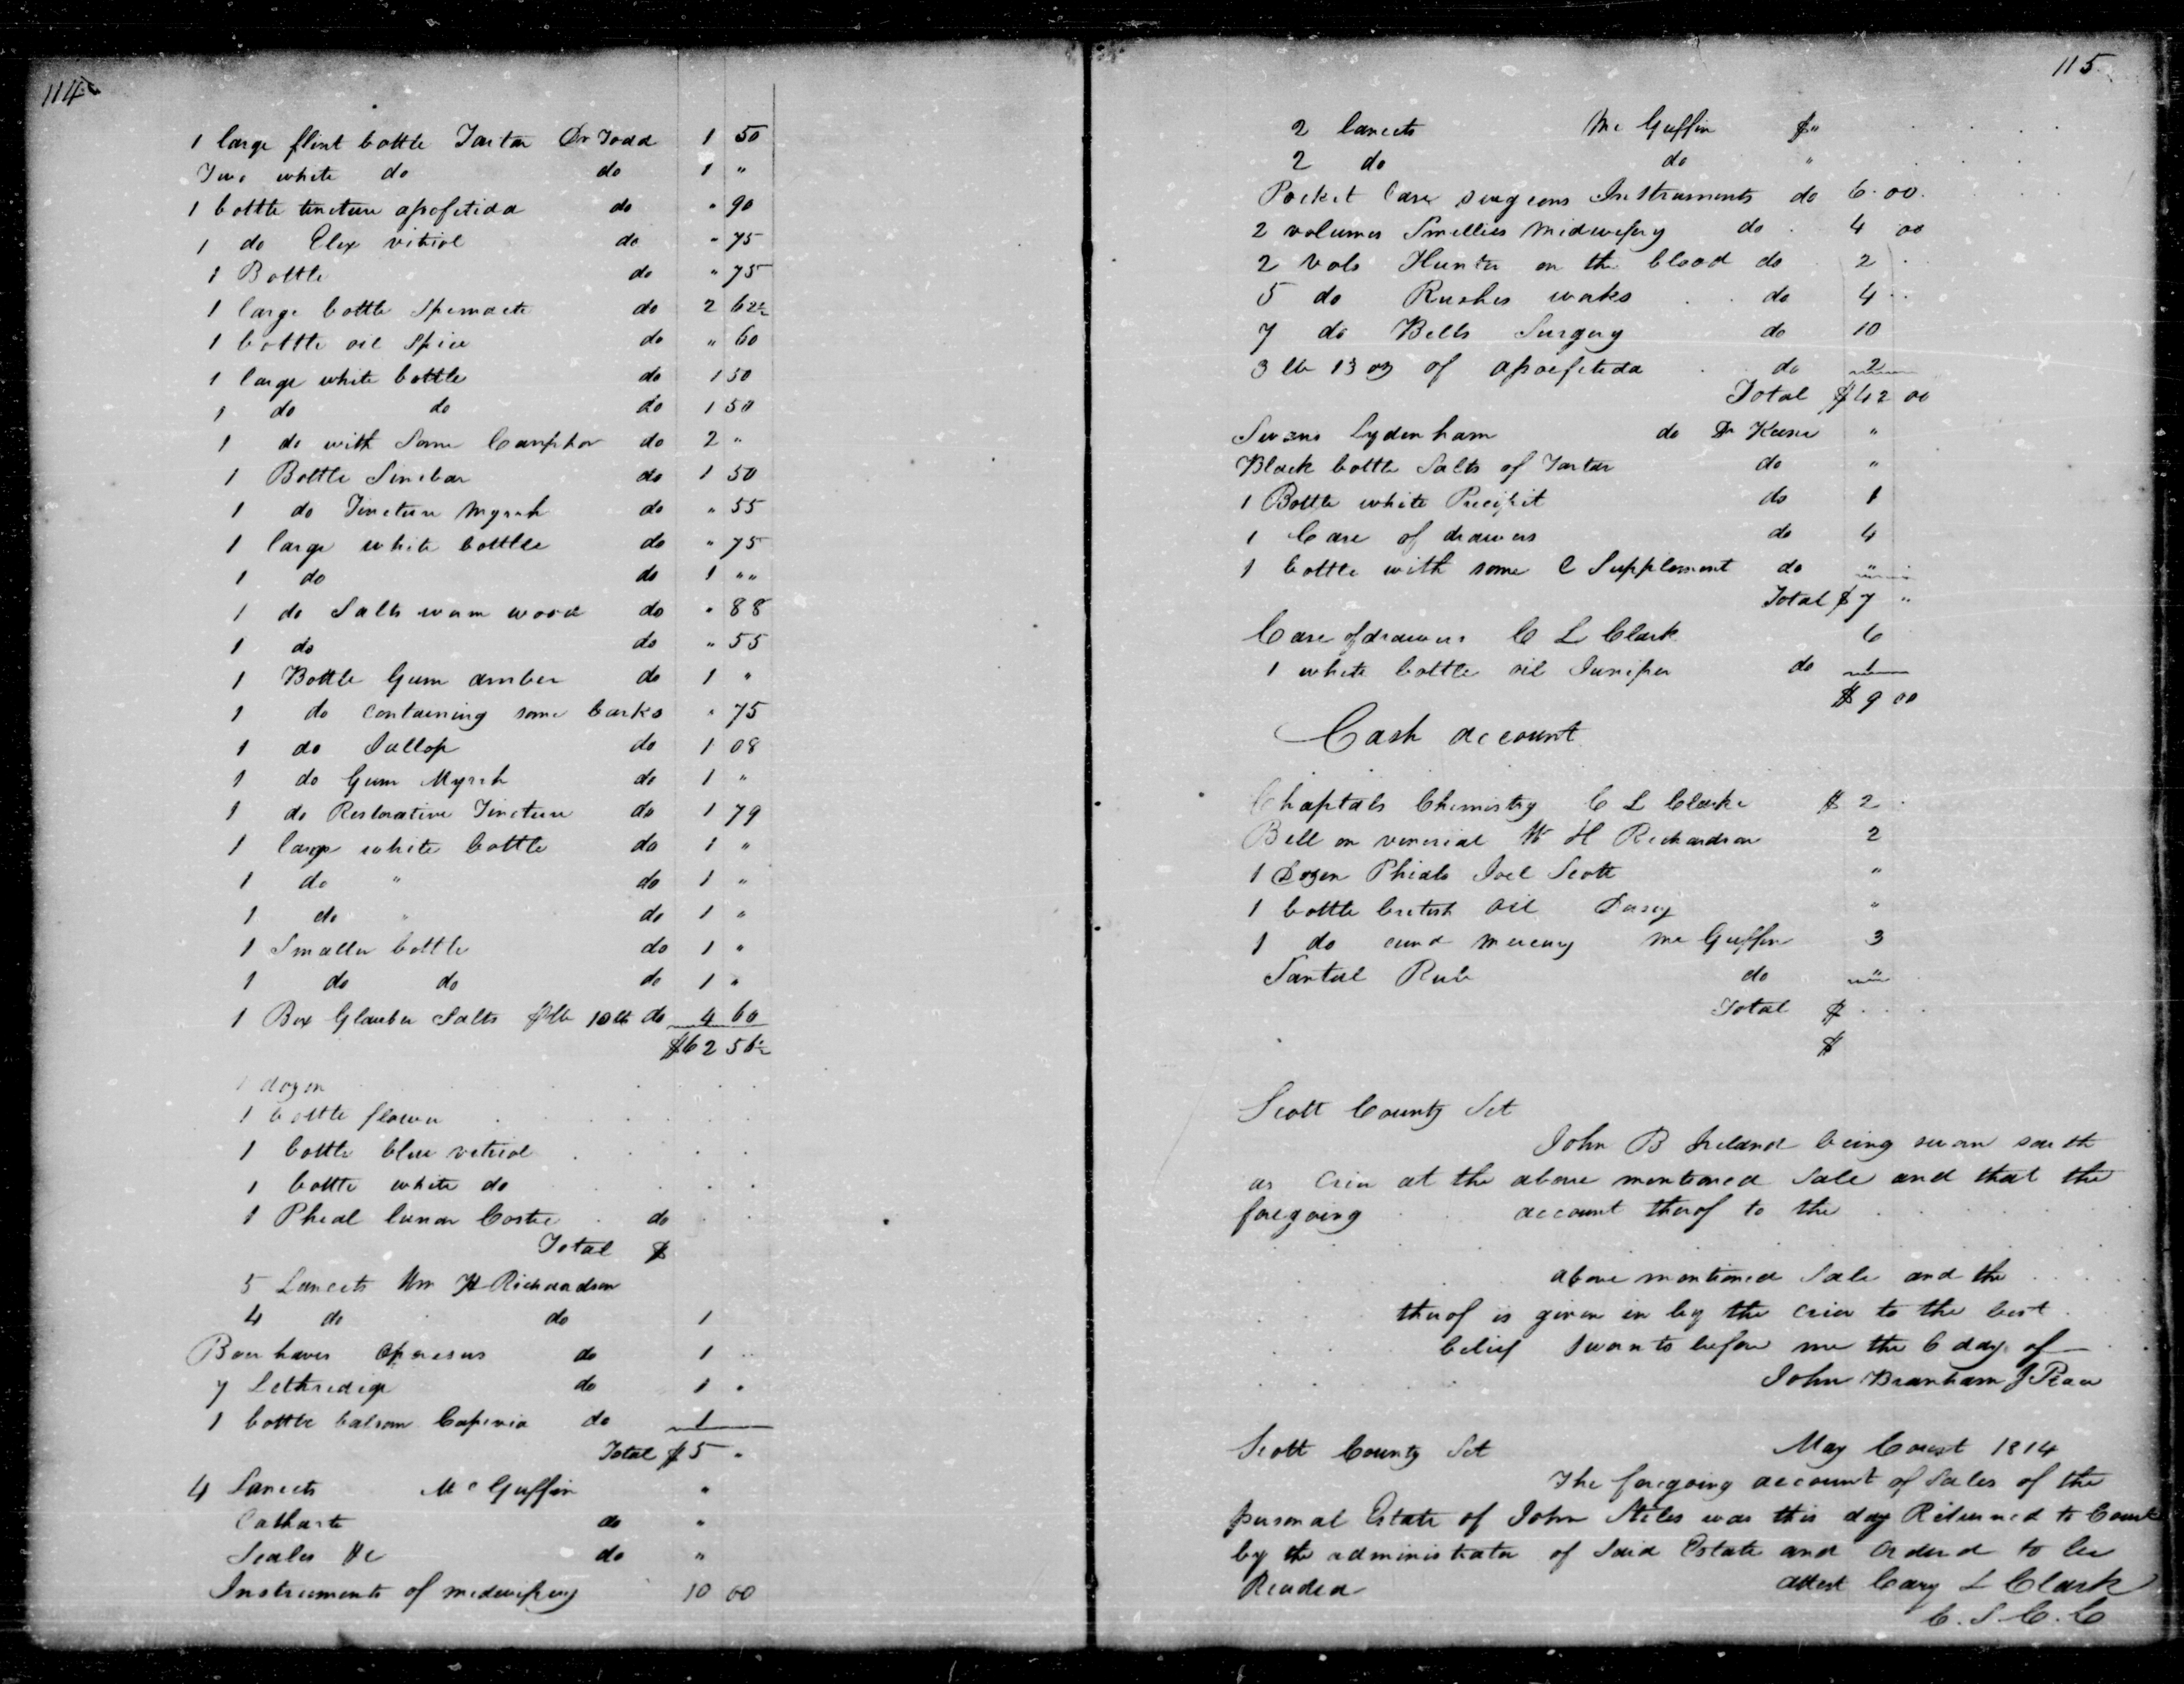 114
1 large flint bottle Tartar Dr Todd 1 50
Two white do do 1 "
1 bottle tincture assfetida do " 90
1 do Elex vitriol do " 75
1 Bottle do " 75
1 large bottle Spermacte do 2 62½
1 bottle oil Spice do " 60
1 large white bottle do 1 50
1 do do do 1 50
1 do with Some Camphor do 2 "
1 Bottle Sinebar do 1 50
1 do Tincture Myrrh do " 55
1 large white bottle do " 75
1 do do 1 " "
1 do Salts worm wood do " 88
1 do do " 55
1 Bottle Gum amber do 1 "
1 do containing some barks " 75
1 do Jallop do 1 08
1 do Gum Myrrh do 1 "
1 do Restorative Tincture do 1 79
1 large white bottle do 1 "
1 do " do 1 "
1 do " do 1 "
1 Smaller bottle do 1 "
1 do do do 1 "
1 Box Glauber Salts 10 lb do 4 60
$62 56½
1 dozen
1 bottle flower
1 bottle blue vitriol
1 bottle white do
1 Phial lunar Costic do
Total $
5 Lancets Wm H Richardson
4 do do 1
Boerhaves do 1
7 do 1
1 bottle balsom Capivia do 1
Total $5 "
4 Lancets McGuffin "
Catharte do "
Scales &c do "
Instruments of midwifery 10 00
115
2 lancets McGuffin $ "
2 do do "
Pocket Case surgeons Instruments do 6.00
2 volumes Smellies Midwifery do 4 00
2 Vols Hunter on the blood do 2
5 do Rushes works do 4
7 do Bells Surgery do 10
3 lb 13 oz of assefetida do 2
Total $42 00
Swans Sydenham do Dr Keene "
Black bottle Salts of Tartar do "
1 Bottle white Precipit do 1
1 Case of drawers do 4
1 bottle with some C Supplement do "
Total $7 "
Case of drawers C L Clark 6
1 white bottle oil Juniper do 1
$9 00
Cash account
Chaptals Chemistry C L Clarke $2
Bell on venerial W H Richardson 2
1 Dozen Phials Joel Scott "
1 bottle british oil "
1 do mercury McGuffin 3
Rub do "
Total $
$
Scott County Sct
John B Ireland being sworn saith
as Crier at the above mentioned Sale and that the
foregoing account therof to the
above mentioned Sale and the
therof is given in by the crier to the best
belief Sworn to before me the 6 day of
John Branham J Peace
Scott County Sct May Court 1814
The foregoing account of Sales of the
personal Estate of John Stiles was this day Returned to Court
by the administrator of Said Estate and Ordered to be
Recorded attest Cary L Clark
C. S. C. C